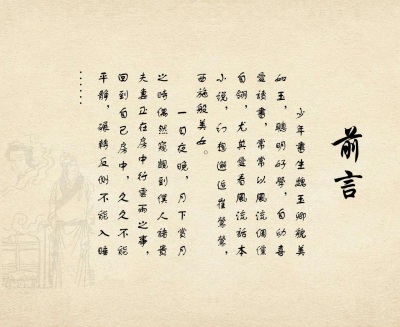 前言
少年書生魏玉卿貌美
如玉，聰明好學，自幼喜
愛讀書，常常以風流倜儻
自詡，尤其愛看風流話本
小說，幻想邂逅崔鶯鶯，
西施般美女。
一日夜晚，月下賞月
之時偶然窺覷到僕人褚貴
夫妻正在房中行雲雨之事，
回到自己房中，久久不能
平靜，輾轉反側不能入睡
......